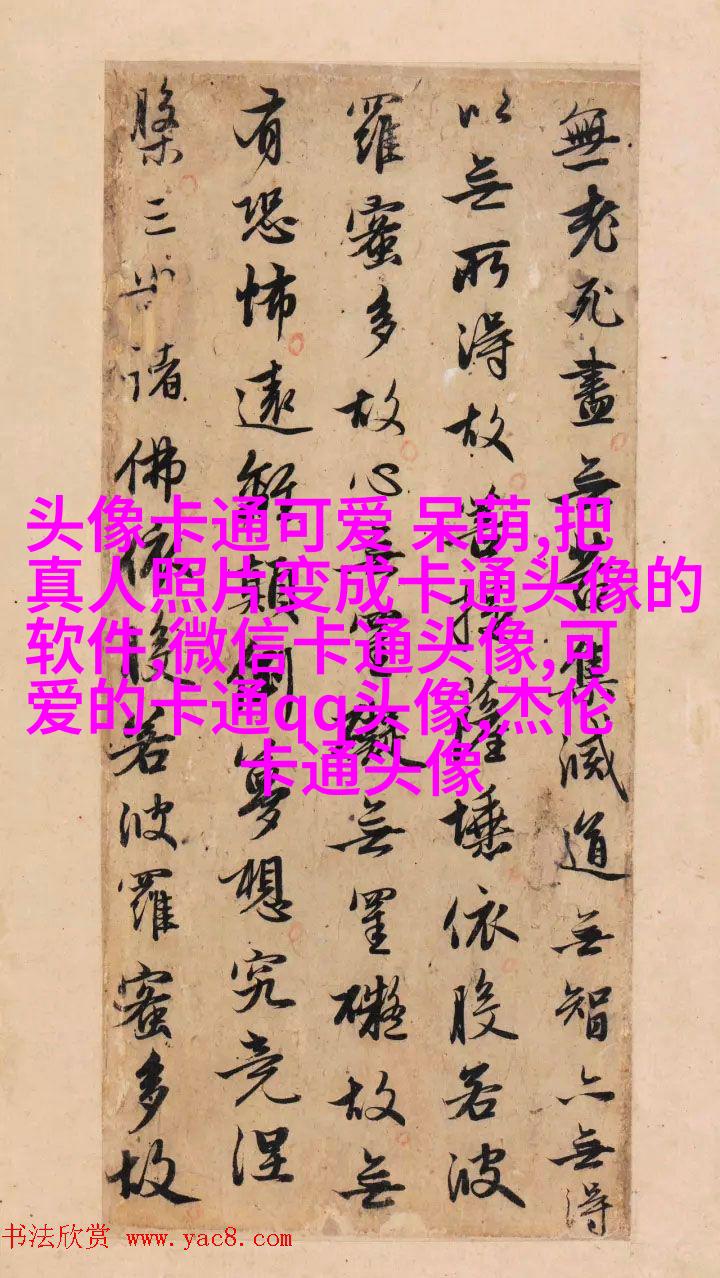 無老死盡无苦集滅道无智亦无得
以无所得故菩提薩埵依般若波
羅蜜多故心无罣礙无罣礙故无
有恐怖遠離顛倒夢想究竟涅
槃三世諸佛依般若波羅蜜多故
头像卡通可爱 呆萌,把
真人照片变成卡通头像的
软件,微信卡通头像,可
爱的卡通qq头像,杰伦
卡通头像
书法欣赏 www.yac8.com